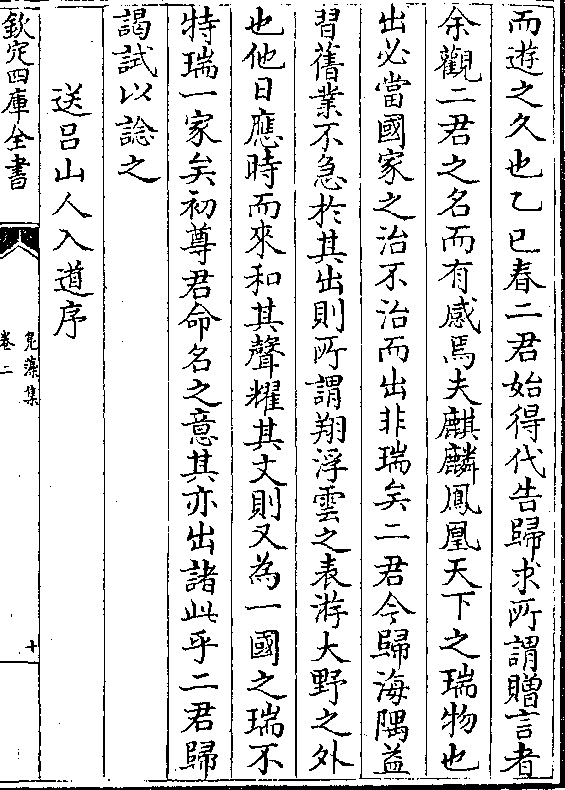 而遊之久也乙巳春二君始得代告歸求所謂贈言者
余觀二君之名而有感焉夫麒麟鳳凰天下之瑞物也
出必當國家之治不治而出非瑞矣二君今歸海隅益
習舊業不急於其出則所謂翔浮雲之表游大野之外
也他日應時而來和其聲耀其文則又為一國之瑞不
特瑞一家矣初尊君命名之意其亦出諸此乎二君歸
謁試以諗之
送呂山人入道序
欽定四庫全書
鳧藻集
卷二
十